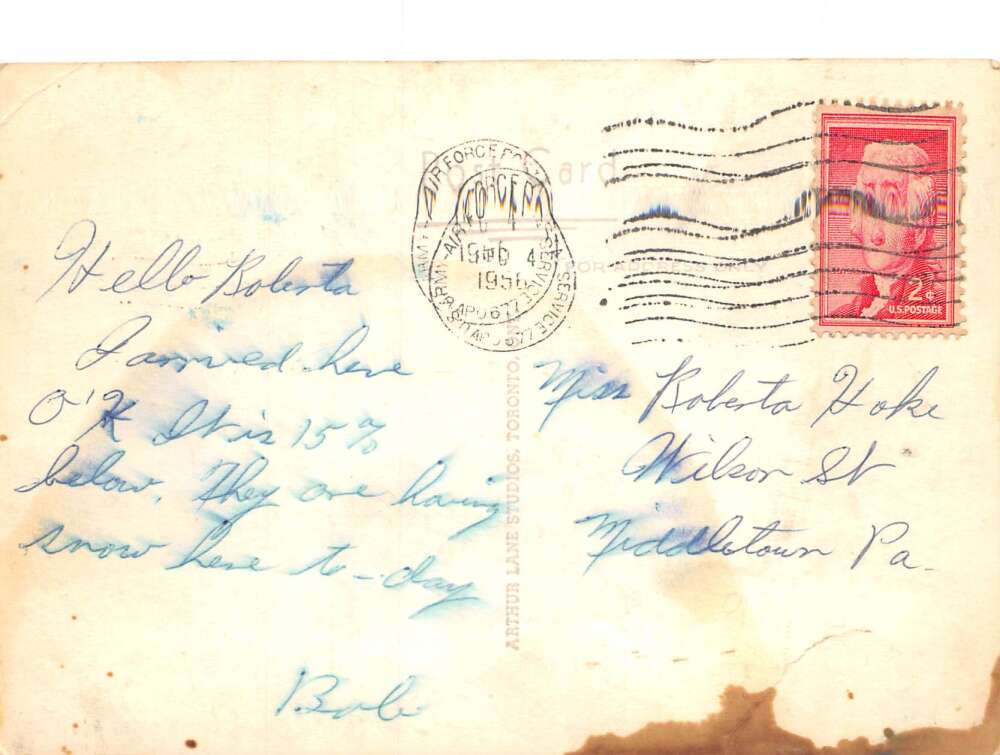 Post Card
FOR ADDRESS ONLY
AIR FORCE
SERVICE
1956
APO 677
2¢
U.S. POSTAGE
ARTHUR LANE STUDIOS, TORONTO,
Hello Roberta
I arrived here
O'K It is 15%
below. They are having
snow here to-day
Bob
Miss Roberta Hoke
Wilson St
Middletown Pa.